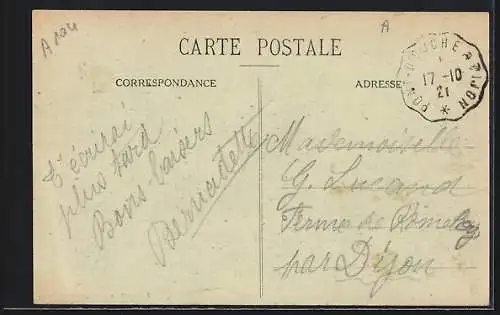 A
CARTE POSTALE
CORRESPONDANCE
ADRESSE
PONT-D'OUCHE A DIJON
17-10
21
T'écrirai
plus tard
Bons baisers
Bernadette
Mademoiselle
G. Lucand
Ferme de
par Dijon